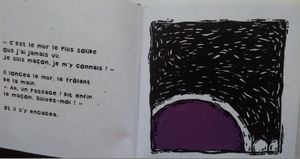 « C'est le mur le plus solide
que j'ai jamais vu.
Je suis maçon, je m'y connais ! »
Il longea le mur, le frôlant
de la main.
« Ah, un passage ! dit enfin
le maçon. Suivez-moi ! »
Et il s'y engagea.